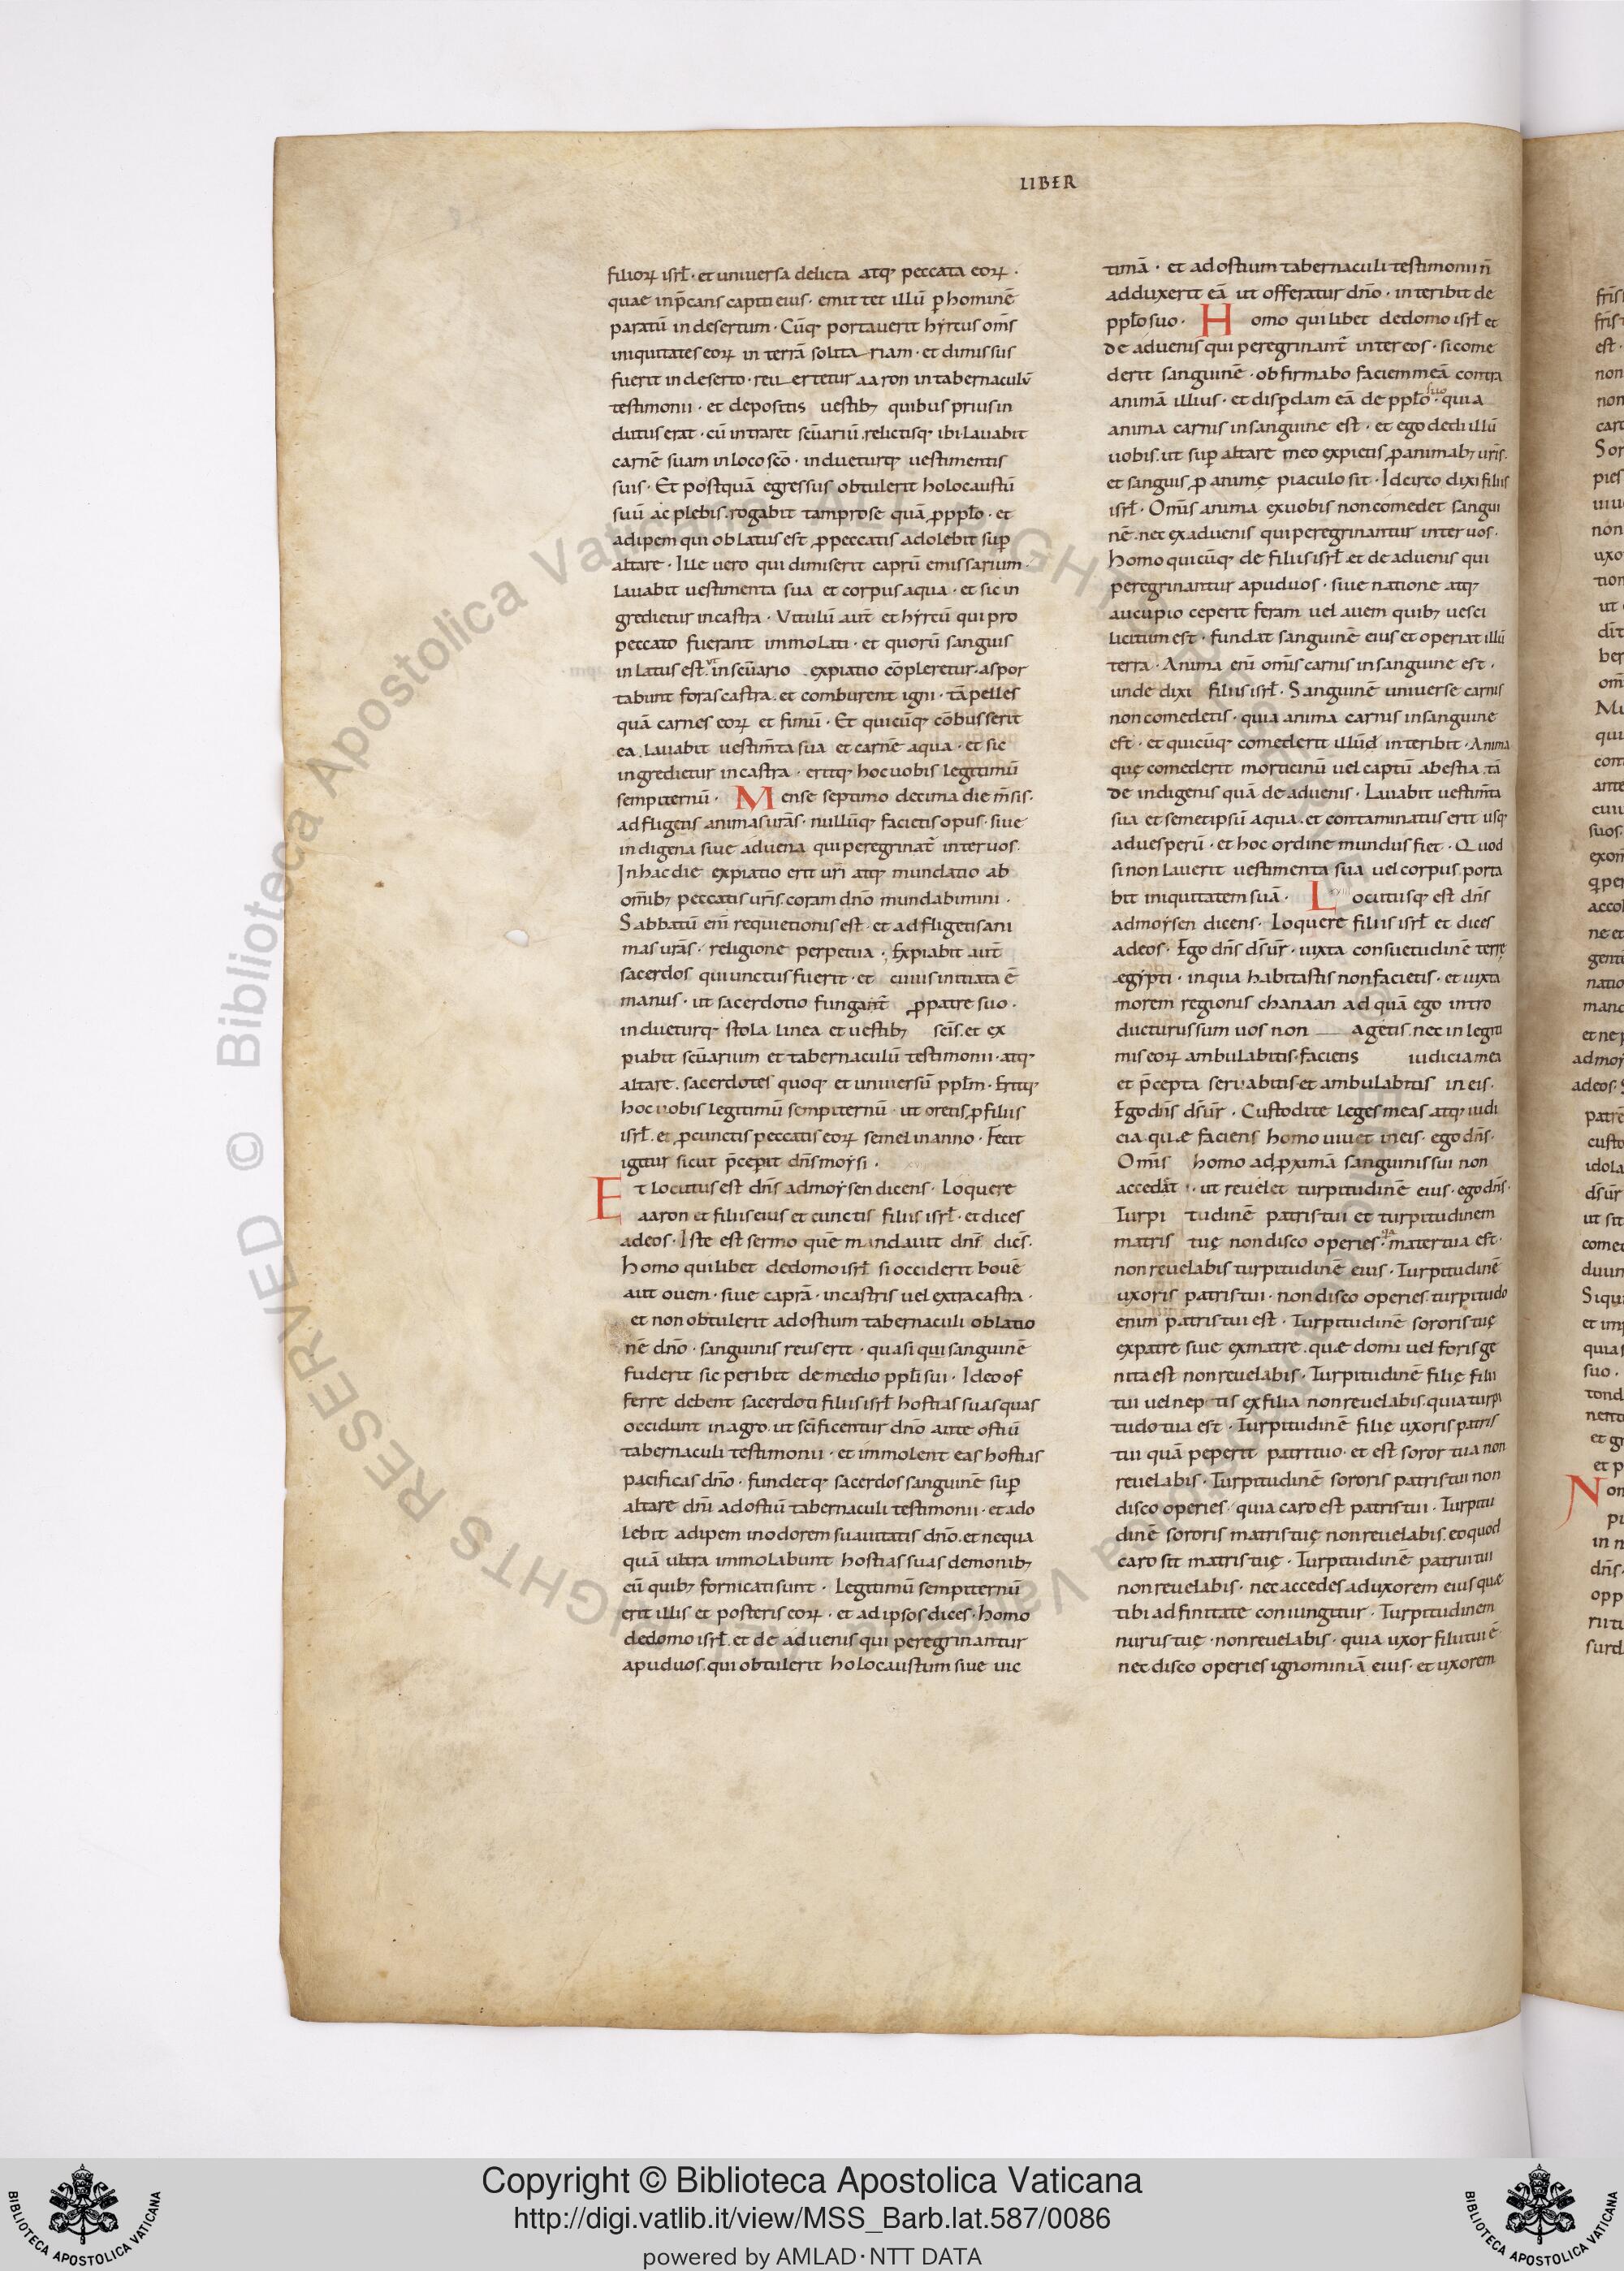 LIBER
filioꝝ isrl̄ · et uniuersa delicta atq; peccata eoꝝ ·
quae inp̄cans capiti eius · emittet illū ꝑ hominē
paratū in desertum · Cūq; portauerit hyrcus om̄s
iniquitates eoꝝ in terrā solitariam · et dimissus
fuerit in deserto · reuertetur aaron in tabernaculū
testimonii · et depositis uestib; quibus prius in
dutus erat · cū intraret sc̄uariū . relictisq; ibi · lauabit
carnē suam in loco sc̄o · indueturq; uestimentis
suis · Et postquā egressus obtulerit holocaustū
suū ac plebis . rogabit tam pro se quā ꝓ pplo · et
adipem qui oblatus est ꝓ peccatis adolebit suꝑ
altare · Ille uero qui dimiserit caprū emissarium ·
lauabit uestimenta sua et corpus aqua · et sic in
gredietur in castra · Vitulū aut̄ et hyrcū qui pro
peccato fuerant immolati · et quorū sanguis
inlatus est ut in sc̄uario expiatio cōpleretur · aspor
tabunt foras castra . et comburent igni · tā pelles
quā carnes eoꝝ et fimū · Et quicūq; cōbusserit
ea . lauabit uestim̄ta sua et carnē aqua · et sic
ingredietur in castra · eritq; hoc uobis legitimū
sempiternū · Mense septimo decima die m̄sis ·
adfligetis animas urās · nullūq; facietis opus · siue
indigena siue aduena qui peregrinat̄ inter uos .
In hac die expiatio erit ur̄i atq; mundatio ab
om̄ib; peccatis ur̄is . coram dn̄o mundabimini ·
Sabbatū eni requietionis est · et adfligetis ani
mas urās · religione perpetua · Expiabit aut̄
sacerdos qui unctus fuerit · et cuius initiata ē
manus · ut sacerdotio fungatur ꝓ patre suo ·
indueturq; stola linea et uestib; sc̄is . et ex
piabit sc̄uarium et tabernaculū testimonii · atq;
altare . sacerdotes quoq; et uniuersū pplm̄ · Eritq;
hoc uobis legitimū sempiternū · ut oretis ꝓ filiis
isrl̄ . et ꝓ cunctis peccatis eoꝝ semel in anno · Fecit
igitur sicut p̄cepit dn̄s moysi ·
Et locutus est dn̄s ad moysen dicens · Loquere
aaron et filiis eius et cunctis filiis isrl̄ · et dices
ad eos · Iste est sermo quē mandauit dn̄s dicēs .
homo quilibet de domo isrl̄ si occiderit bouē
aut ouem · siue caprā · in castris uel extra castra ·
et non obtulerit ad ostium tabernaculi oblatio
nē dn̄o · sanguinis reus erit · quasi qui sanguinē
fuderit sic peribit de medio ppli sui · Ideo of
ferre debent sacerdoti filii isrl̄ hostias suas quas
occidunt in agro . ut sc̄ificentur dn̄o ante ostiū
tabernaculi testimonii · et immolent eas hostias
pacificas dn̄o · fundetq; sacerdos sanguinē suꝑ
altare dn̄i ad ostiū tabernaculi testimonii · et ado
lebit adipem in odorem suauitatis dn̄o . et nequa
quā ultra immolabunt hostias suas demonib;
cū quib; fornicati sunt · Legitimū sempiternū
erit illis et posteris eoꝝ · et ad ipsos dices · homo
de domo isrl̄ . et de aduenis qui peregrinantur
apud uos . qui obtulerit holocaustum siue uic
timā · et ad ostium tabernaculi testimonii n̄
adduxerit eā ut offeratur dn̄o · interibit de
pplo suo · Homo quilibet de domo isrl̄ et
de aduenis qui peregrinant̄ inter eos · si come
derit sanguinē · obfirmabo faciem meā contra
animā illius · et disꝑdam eā de pplo suo · quia
anima carnis in sanguine est · et ego dedi illū
uobis . ut suꝑ altare meo expietis ꝓ animab; ur̄is .
et sanguis ꝓ animę piaculo sit · Idcirco dixi filiis
isrl̄ · Om̄is anima ex uobis non comedet sangui
nē . nec ex aduenis qui peregrinantur inter uos ·
homo quicūq; de filiis isrl̄ . et de aduenis qui
peregrinantur apud uos · siue natione atq;
aucupio ceperit feram uel auem quib; uesci
licitum est · fundat sanguinē eius et operiat illū
terra · Anima eni om̄is carnis in sanguine est .
unde dixi filiis isrl̄ · Sanguinē uniuerse carnis
non comedetis · quia anima carnis in sanguine
est · et quicūq; comederit illūd interibit · Anima
quę comederit morticinū uel captū a bestia . tā
de indigenis quā de aduenis · Lauabit uestim̄ta
sua et semetipsū aqua . et contaminatus erit usq;
ad uesperū · et hoc ordine mundus fiet · Quod
si non lauerit uestimenta sua uel corpus . porta
bit iniquitatem suā · Locutusq; est dn̄s
ad moysen dicens · Loquere filiis isrl̄ et dices
ad eos · Ego dn̄s d̄s ur̄ · iuxta consuetudinē terrę
egypti · in qua habitastis non facietis · et iuxta
morem regionis chanaan ad quā ego intro
ducturus sum uos non agetis . nec in legiti
mis eoꝝ ambulabitis · facietis iudicia mea
et p̄cepta seruabitis · et ambulabitis in eis ·
Ego dn̄s d̄s ur̄ · Custodite leges meas atq; iudi
cia . quæ faciens homo uiuet in eis · ego dn̄s ·
Om̄is homo ad ꝓximā sanguinis sui non
accedat · ut reuelet turpitudinē eius · ego dn̄s ·
Turpitudinē patris tui et turpitudinem
matris tuę non disco operies · q̄a mater tua est ·
non reuelabis turpitudinē eius · Turpitudinē
uxoris patris tui · non disco operies . turpitudo
enim patris tui est · Turpitudinē sororis tuę
ex patre siue ex matre . quæ domi uel foris ge
nita est non reuelabis · Turpitudinē filię filii
tui uel neptis ex filia non reuelabis . quia turpi
tudo tua est · Turpitudinē filię uxoris patris
tui quā peperit patri tuo · et est soror tua non
reuelabis · Turpitudinē sororis patris tui non
disco operies · quia caro est patris tui · Turpitu
dinē sororis matris tuę non reuelabis . eo quod
caro sit matris tuę · Turpitudinē patrui tui
non reuelabis · nec accedes ad uxorem eius quæ
tibi adfinitate coniungitur · Turpitudinem
nurus tuę · non reuelabis · quia uxor filii tui ē
nec disco operies ignominiā eius · et uxorem
© Biblioteca Apostolica Vaticana ALL RIGHTS RESERVED
Copyright © Biblioteca Apostolica Vaticana
http://digi.vatlib.it/view/MSS_Barb.lat.587/0086
powered by AMLAD·NTT DATA
BIBLIOTECA APOSTOLICA VATICANA
BIBLIOTECA APOSTOLICA VATICANA